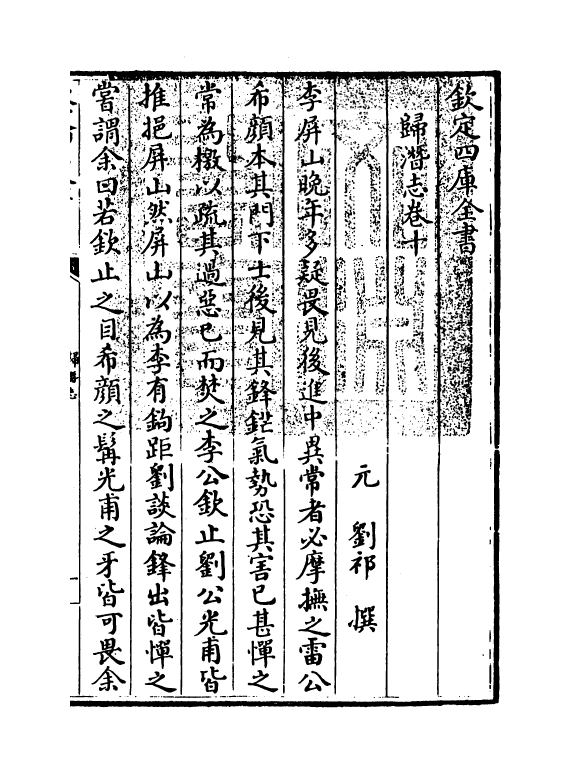 欽定四庫全書
歸潛志卷十
元　劉祁　撰
李屏山晚年多疑畏見後進中異常者必摩撫之雷公
希顔本其門下士後見其鋒鋩氣勢恐其害已甚憚之
常為檄以疏其過惡已而焚之李公欽止劉公光甫皆
推挹屏山然屏山以為李有鈎距劉談論鋒出皆憚之
嘗謂余曰若欽止之目希顔之髯光甫之牙皆可畏余
歸潛志